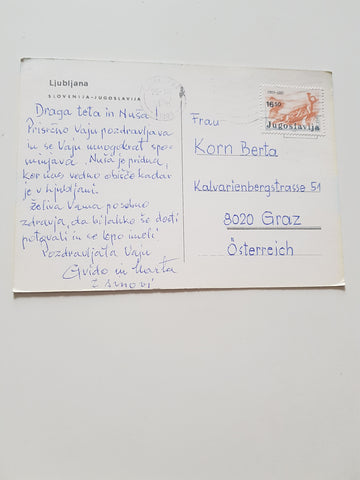 Ljubljana
SLOVENIJA-JUGOSLAVIJA
Draga teta in Nuša!
Prisrčno Vaju pozdravljava
in se Vaju mnogokrat spom
minjava. Nuša je pridna,
ker nas vedno obišče kadar
je v Ljubljani.
Želiva Vama posebno
zdravja, da bi lahko še dosti
potovali in se lepo imeli
Pozdravljata Vaju
Gvido in Marta
z sinovi
16.50
Jugoslavija
Frau
Korn Berta
Kalvarienbergstrasse 51
8020 Graz
Österreich